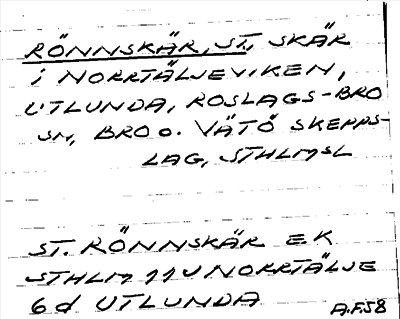 RÖNNSKÄR, ST., SKÄR
i NORRTÄLJEVIKEN,
UTLUNDA, ROSLAGS-BRO
SN, BRO o. VÄTÖ SKEPPS-
LAG, STHLMSL
ST. RÖNNSKÄR EK
STHLM 11U NORRTÄLJE
6d UTLUNDA
A.F.58